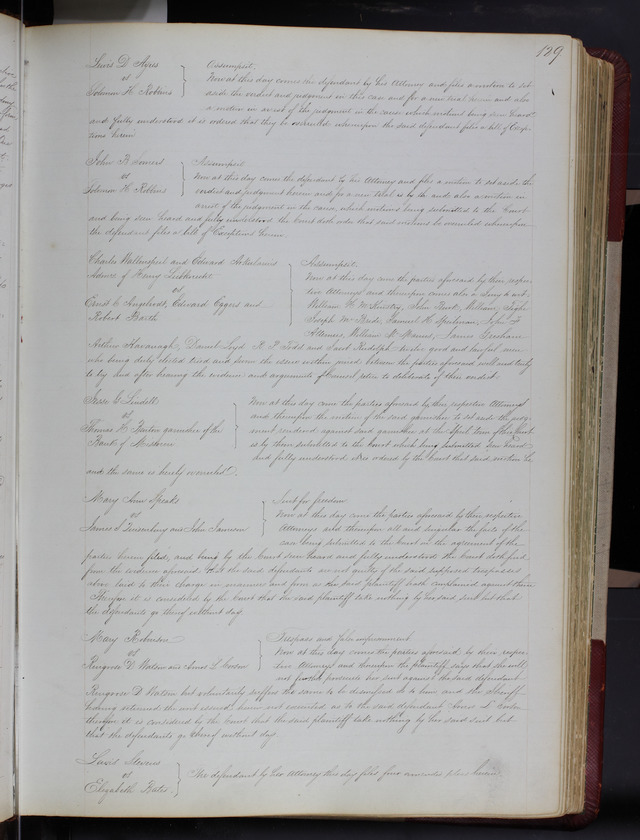 129
Lewis D. Ayres
vs
Solomon H. Robbins
Assumpsit.
Now at this day comes the defendant by his Attorney and files a motion to set
aside the verdict and judgement in this case and for a new trial herein and also
a motion in arrest of the judgement in the cause which motions being seen heard
and fully understood it is ordered that they be overruled whereupon the said defendant files a bill of Excep-
tions herein
John B
vs
Solomon H. Robbins
Assumpsit
Now at this day came the defendant by his Attorney and files a motion to set aside the
verdict and judgment herein and for a new trial and also a motion in
arrest of the judgment in the cause, which motions being submitted to the Court
and being seen heard and fully understood the Court doth order that said motions be overruled whereupon
the defendant files a bill of Exceptions herein.
Charles Wallingford and Edward
of Henry
vs
Ernst C. Angelrodt, Edward Eggers and
Robert Barth
Assumpsit.
Now at this day came the parties aforesaid by their respec-
tive Attorneys and thereupon comes also a Jury to wit,
William H. McKinstry, John William
Joseph McBride, Samuel H. John F
William M. James
Arthur Kavanagh, Daniel Loyd, Todd and Rudolph twelve good and lawful men
who being duly elected tried and sworn the issue within joined between the parties aforesaid well and truly
to try and after hearing the evidence and arguments of Counsel retire to deliberate of their verdict.
Jesse G. Lindell
vs
Thomas H. garnishee of the
Bank of Missouri
Now at this day came the parties aforesaid by their respective Attorneys
and thereupon the motion of the said garnishee to set aside the judg-
ment rendered against said garnishee at the April term of this Court
is by them submitted to the Court which being submitted seen heard
and fully understood it is ordered by the Court that said motion be
and the same is hereby overruled.
Mary Ann Speaks
vs
James S. and John Jamison
Suit for freedom
Now at this day came the parties aforesaid by their respective
Attorneys and thereupon all and singular the facts of the
case being submitted to the Court on the agreement of the
parties herein filed, and being by the Court seen heard and fully understood the Court doth find
from the evidence aforesaid that the said defendants are not guilty of the said supposed trespasses
above laid to their charge in manner and form as the said plaintiff hath complained against them
Therefore it is considered by the Court that the said plaintiff take nothing by her said suit but that
the defendants go thereof without day.
Mary Robinson
vs
Ringrose D. Watson and Amos L.
Trespass and false imprisonment
Now at this day comes the parties aforesaid by their respec-
tive Attorneys and thereupon the plaintiff says that she will
not further prosecute her suit against the said defendant
Ringrose D Watson but voluntarily suffers the same to be dismissed as to him and the sheriff
having returned the writ issued herein not executed as to the said defendant Amos L
therefore it is considered by the Court that the said plaintiff take nothing by her said suit but
that the defendants go thereof without day.
David Stevens
vs
Elizabeth Bates.
The defendant by her Attorney this day files four amended pleas herein